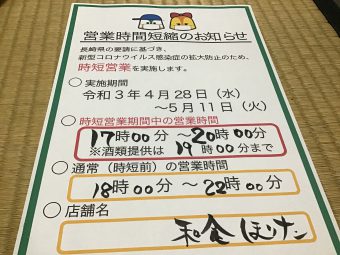 営業時間短縮のお知らせ
長崎県の要請に基づき、
新型コロナウイルス感染症の拡大防止のため、
時短営業を実施します。
○ 実施期間
令和3年4月28日（水）
～5月11日（火）
○ 時短営業期間中の営業時間
17時00分 ～20時00分
※酒類提供は 19時00分まで
○ 通常（時短前）の営業時間
18時00分 ～ 22時00分
○ 店舗名
和食 ほりけン